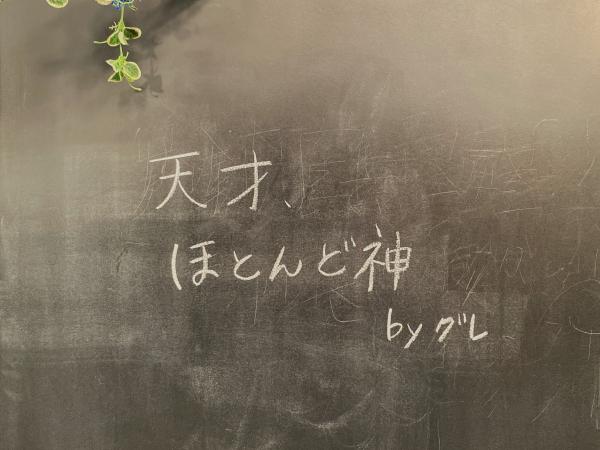 天才、
ほとんど神
by グレ